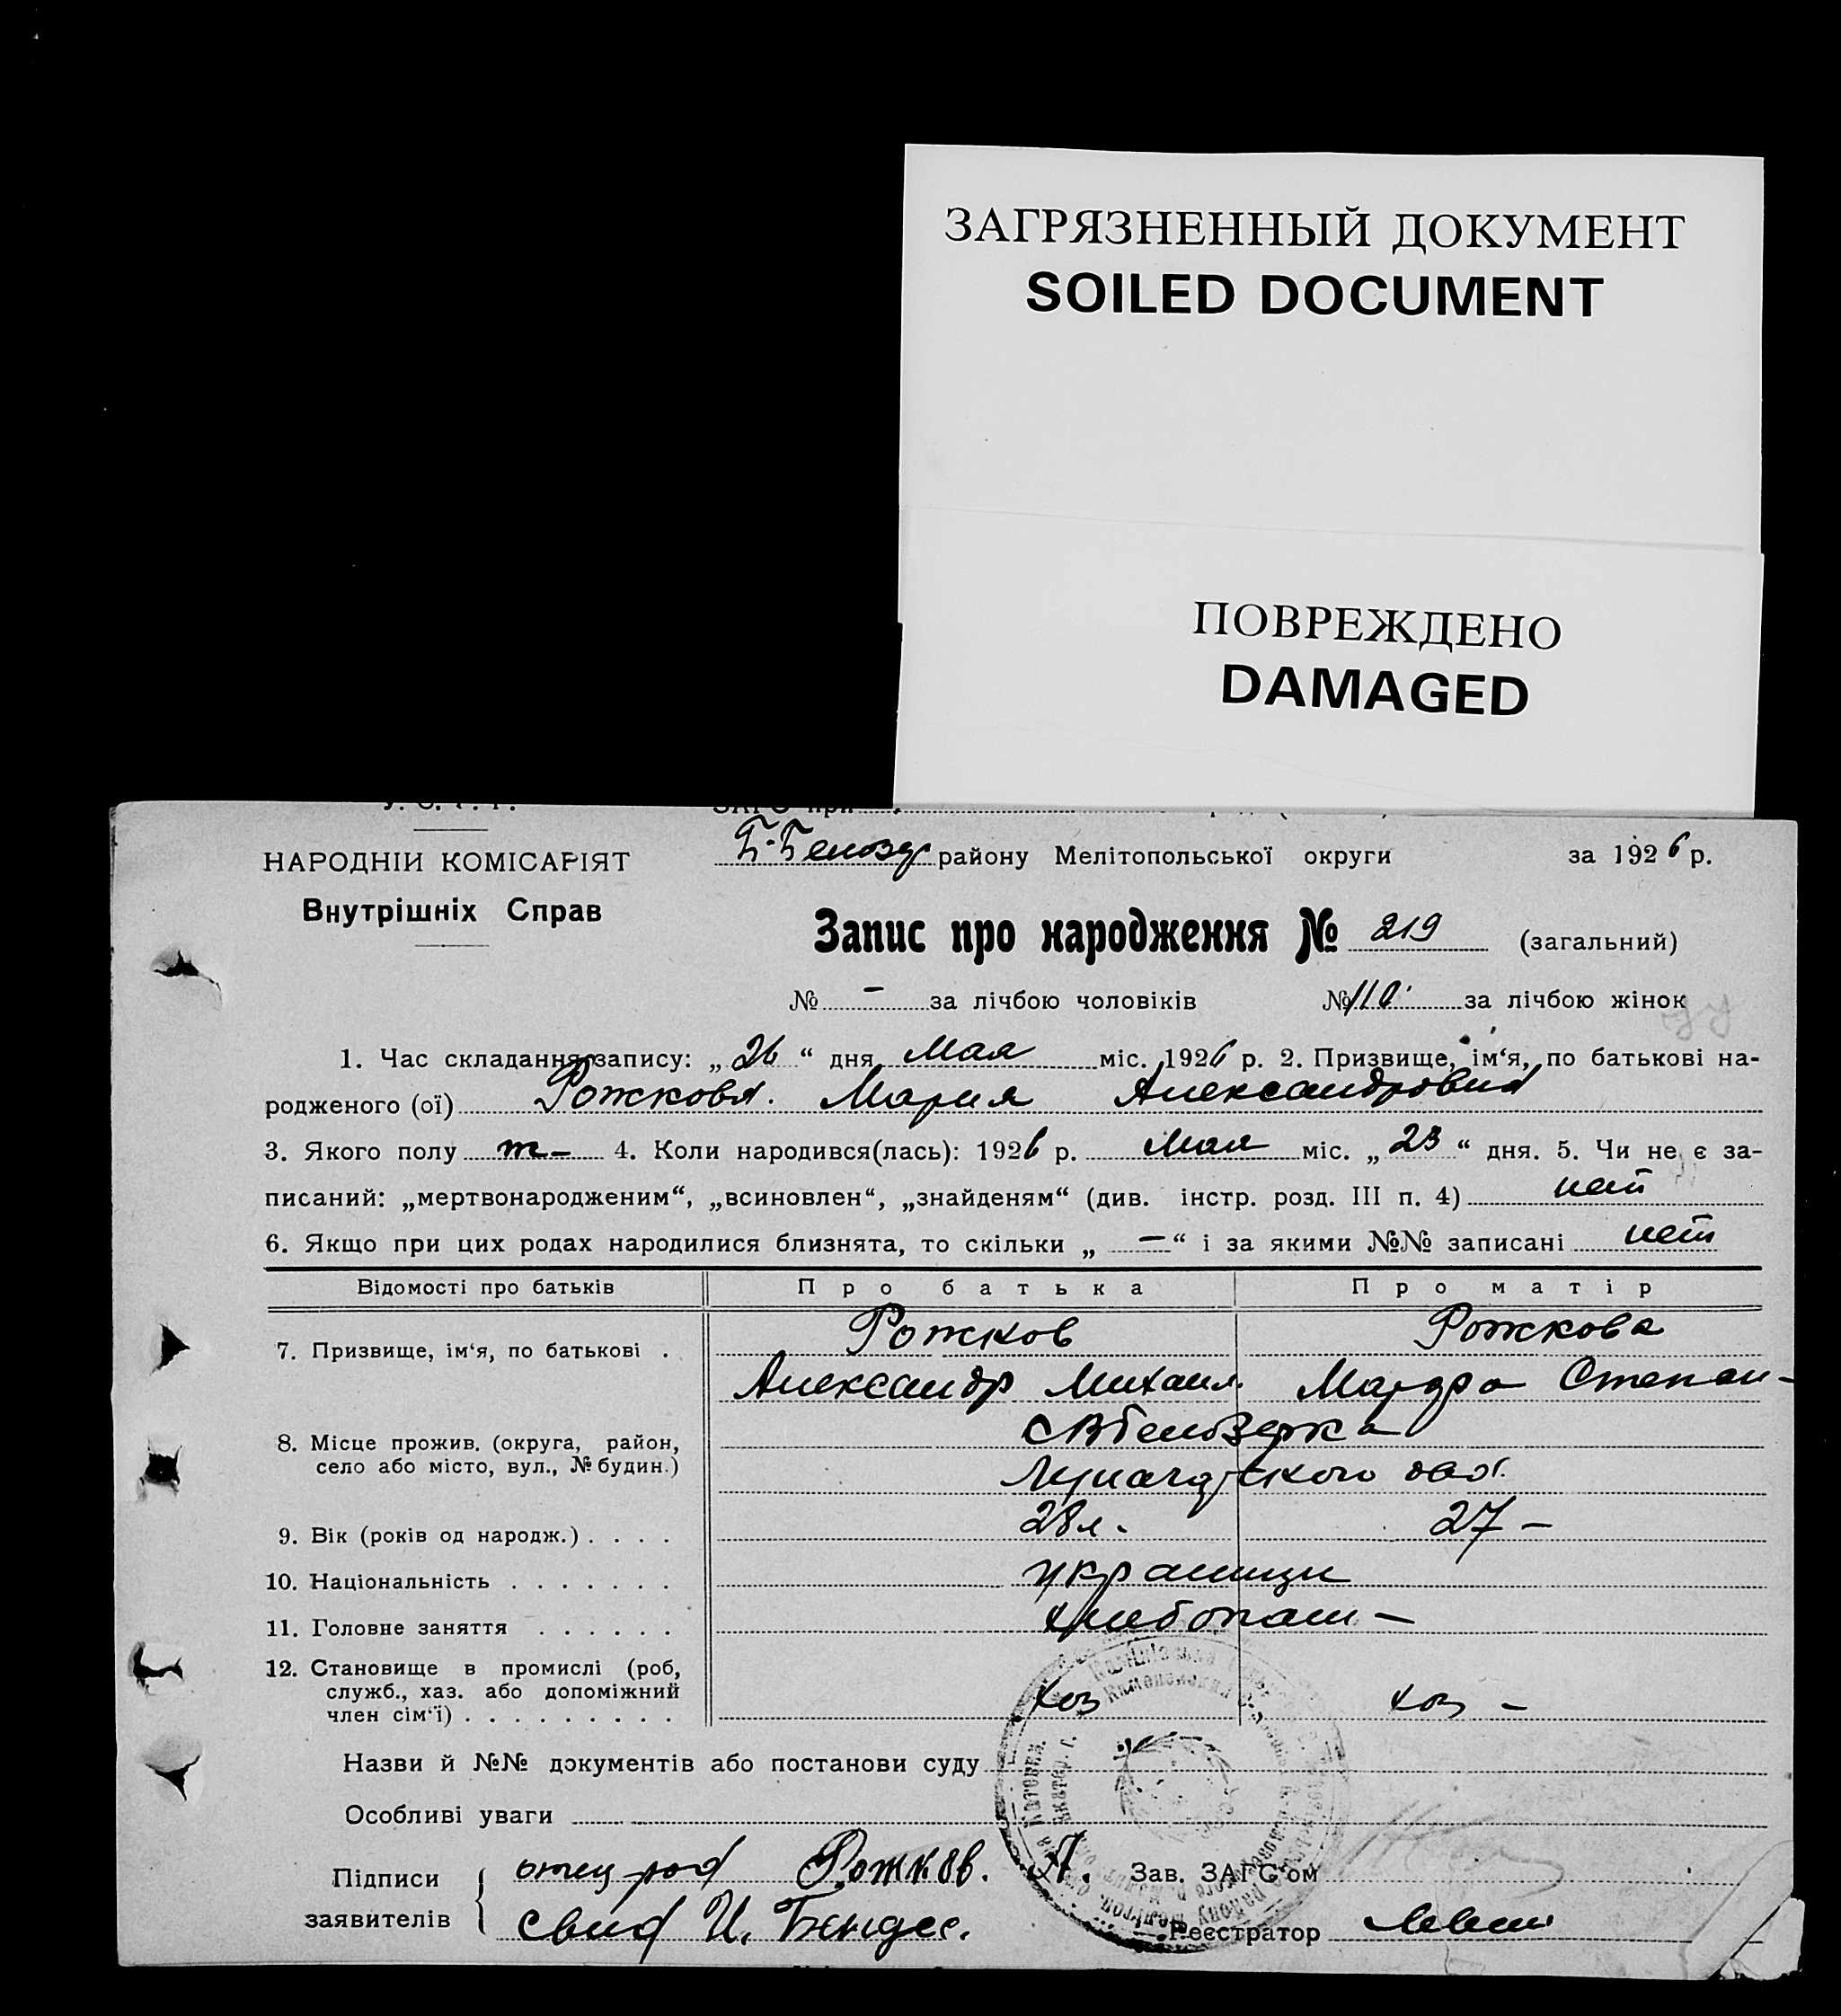 ЗАГРЯЗНЕННЫЙ ДОКУМЕНТ
SOILED DOCUMENT
ПОВРЕЖДЕНО
DAMAGED
НАРОДНІЙ КОМІСАРІЯТ
Внутрішніх Справ
Б-Белозер району Мелітопольської округи за 1926 р.
Запис про народження № 219 (загальний)
№ – за лічбою чоловіків № 110 за лічбою жінок
1. Час складання запису: „26“ дня Мая міс. 1926 р. 2. Призвище, ім‘я, по батькові на-
родженого (ої) Рожкова Мария Александровна
3. Якого полу ж– 4. Коли народився(лась): 1926 р. Мая міс. „23“ дня. 5. Чи не є за-
писаний: „мертвонародженим“, „всиновлен“, „знайденям“ (див. інстр. розд. III п. 4) нет
6. Якщо при цих родах народилися близнята, то скільки „ – “ і за якими №№ записані нет
Відомості про батьків Про батька Про матір
7. Призвище, ім‘я, по батькові . Рожков Рожкова
Александр Михаил. Степан-
8. Місце прожив. (округа, район,
село або місто, вул., № будин.)
9. Вік (років од народж.) . . . . 28 л. 27 –
10. Національність . . . . . . . украинцы
11. Головне заняття . . . . . . хлебопаш –
12. Становище в промислі (роб,
служб., хаз. або допоміжний
член сім‘ї) . . . . . . . . . хоз хоз –
Назви й №№ документів або постанови суду
Особливі уваги
Підписи
заявителів
отец Рожков. А. Зав. ЗАГС‘ом
свид И. Реєстратор